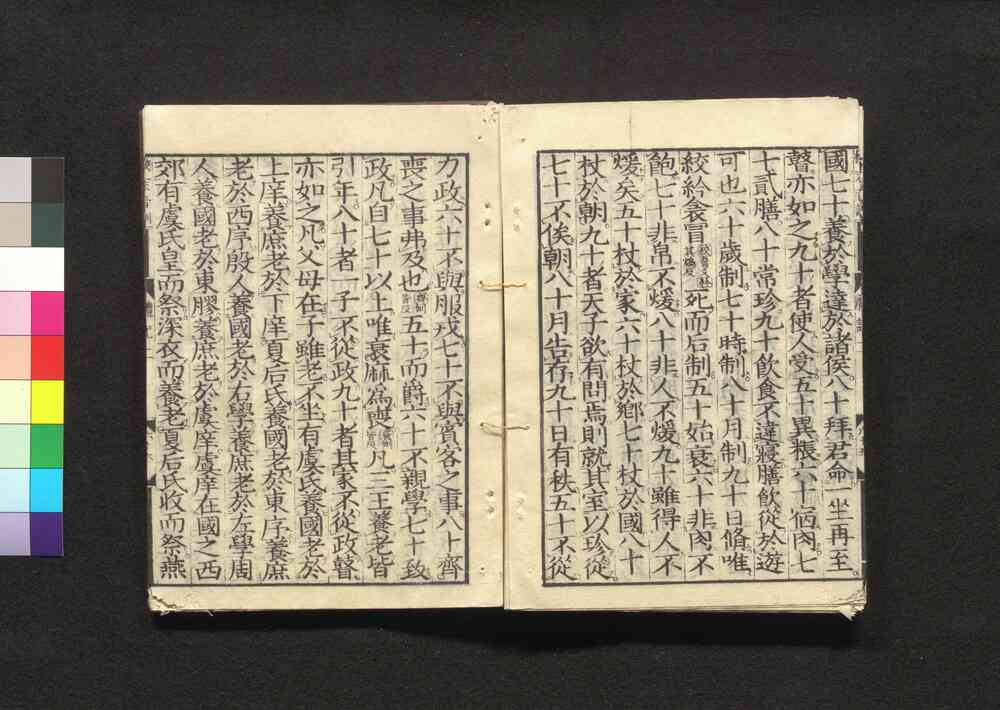 國七十養於學達於諸侯八十拜君命一坐再至
瞽亦如之九十者使人受五十異粻六十宿肉七
十貳膳八十常珍九十飲食不違寢膳飲從於遊
可也六十歲制七十時制八十月制九十日脩唯
絞紟衾冒死而后制五十始衰六十非肉不
飽七十非帛不煖八十非人不煖九十雖得人不
煖矣五十杖於家六十杖於鄉七十杖於國八十
杖於朝九十者天子欲有問焉則就其室以珍從
七十不俟朝八十月告存九十日有秩五十不從
力政六十不與服戎七十不與賓客之事八十齊
喪之事弗及也五十而爵六十不親學七十致
政凡自七十以上唯衰麻爲喪凡三王養老皆
引年八十者一子不從政九十者其家不從政瞽
亦如之凡父母在子雖老不坐有虞氏養國老於
上庠養庶老於下庠夏后氏養國老於東序養庶
老於西序殷人養國老於右學養庶老於左學周
人養國老於東膠養庶老於虞庠虞庠在國之西
郊有虞氏皇而祭深衣而養老夏后氏收而祭燕